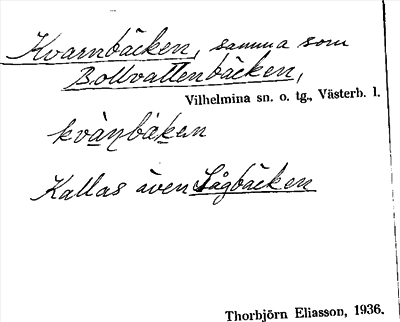 Kvarnbäcken, samma som
Bollvattenbäcken,
Vilhelmina sn. o. tg., Västerb. l.
kvànbäken
Kallas även Sågbäcken
Thorbjörn Eliasson, 1936.